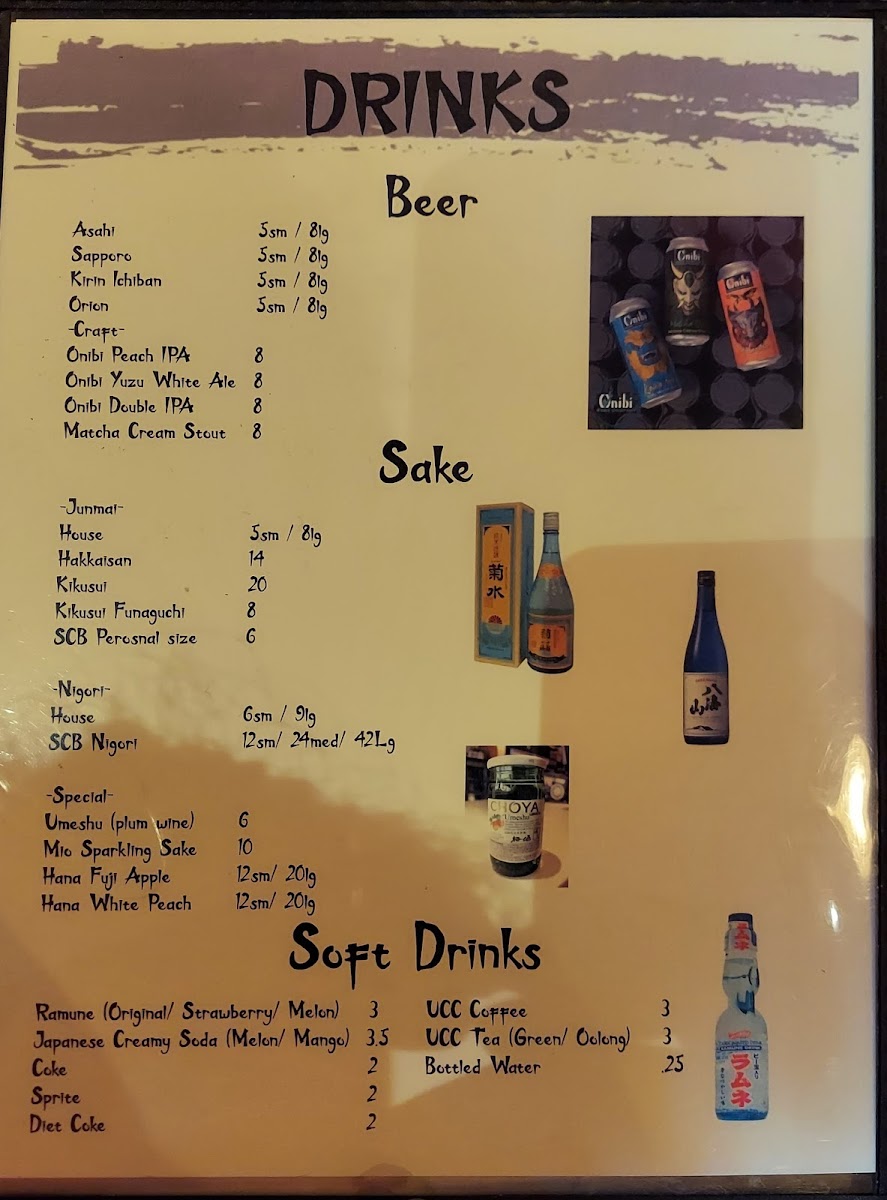 DRINKS
Beer
Asahi 5sm / 8lg
Sapporo 5sm / 8lg
Kirin Ichiban 5sm / 8lg
Orion 5sm / 8lg
-Craft-
Onibi Peach IPA 8
Onibi Yuzu White Ale 8
Onibi Double IPA 8
Matcha Cream Stout 8
Onibi
Onibi
Onibi
Onibi
Sake
-Junmai-
House 5sm / 8lg
Hakkaisan 14
Kikusui 20
Kikusui Funaguchi 8
SCB Perosnal size 6
菊水
八海山
-Nigori-
House 6sm / 9lg
SCB Nigori 12sm/ 24med/ 42Lg
CHOYA
Umeshu
-Special-
Umeshu (plum wine) 6
Mio Sparkling Sake 10
Hana Fuji Apple 12sm/ 20lg
Hana White Peach 12sm/ 20lg
Soft Drinks
Ramune (Original/ Strawberry/ Melon) 3 UCC Coffee 3
Japanese Creamy Soda (Melon/ Mango) 3.5 UCC Tea (Green/ Oolong) 3
Coke 2 Bottled Water .25
Sprite 2
Diet Coke 2
ラムネ
ラムネ